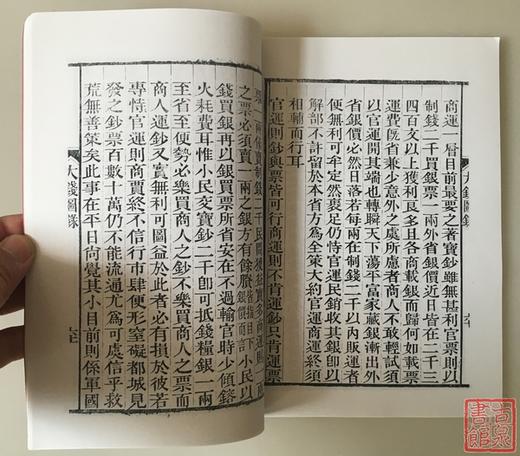 商運一層目前最要之著寶鈔雖無甚利官票則以
制錢二千買銀票一兩外省銀價近日皆在二千三
四百文以上獲利良多且各商載銀而歸何如載票
運費旣省兼少意外之處所慮者商人不敢輕試須
以官運開其端也轉瞬天下蕩平富家藏銀漸出外
省銀價必然日落若每兩在制錢二千以內販運者
便無利可牟定然裹足仍恃官運民銷收其銀
解部不許留於本省方為全策大約官運商運終須
相輔而行耳
官運則鈔與票皆可行商運則不肯運鈔只肯運票
大錢圖錄
六十
之票必須賣一兩之銀方有餘
錢買銀再以銀買票所省安在不過輸官時少傾鎔
火耗費耳惟小民交寶鈔二千卽可抵錢糧銀一兩
至省至便勢必樂買商人之鈔不樂買商人之票而
商人運鈔又實無利可圖益於此者必有損於彼若
專恃官運則商賈終不信行市肆便形窒礙都城見
發之鈔票百數十萬仍不能流通尤為可處信乎救
荒無善策矣此事在平日尚覺其小目前則係軍國
大錢圖錄
古泉書館